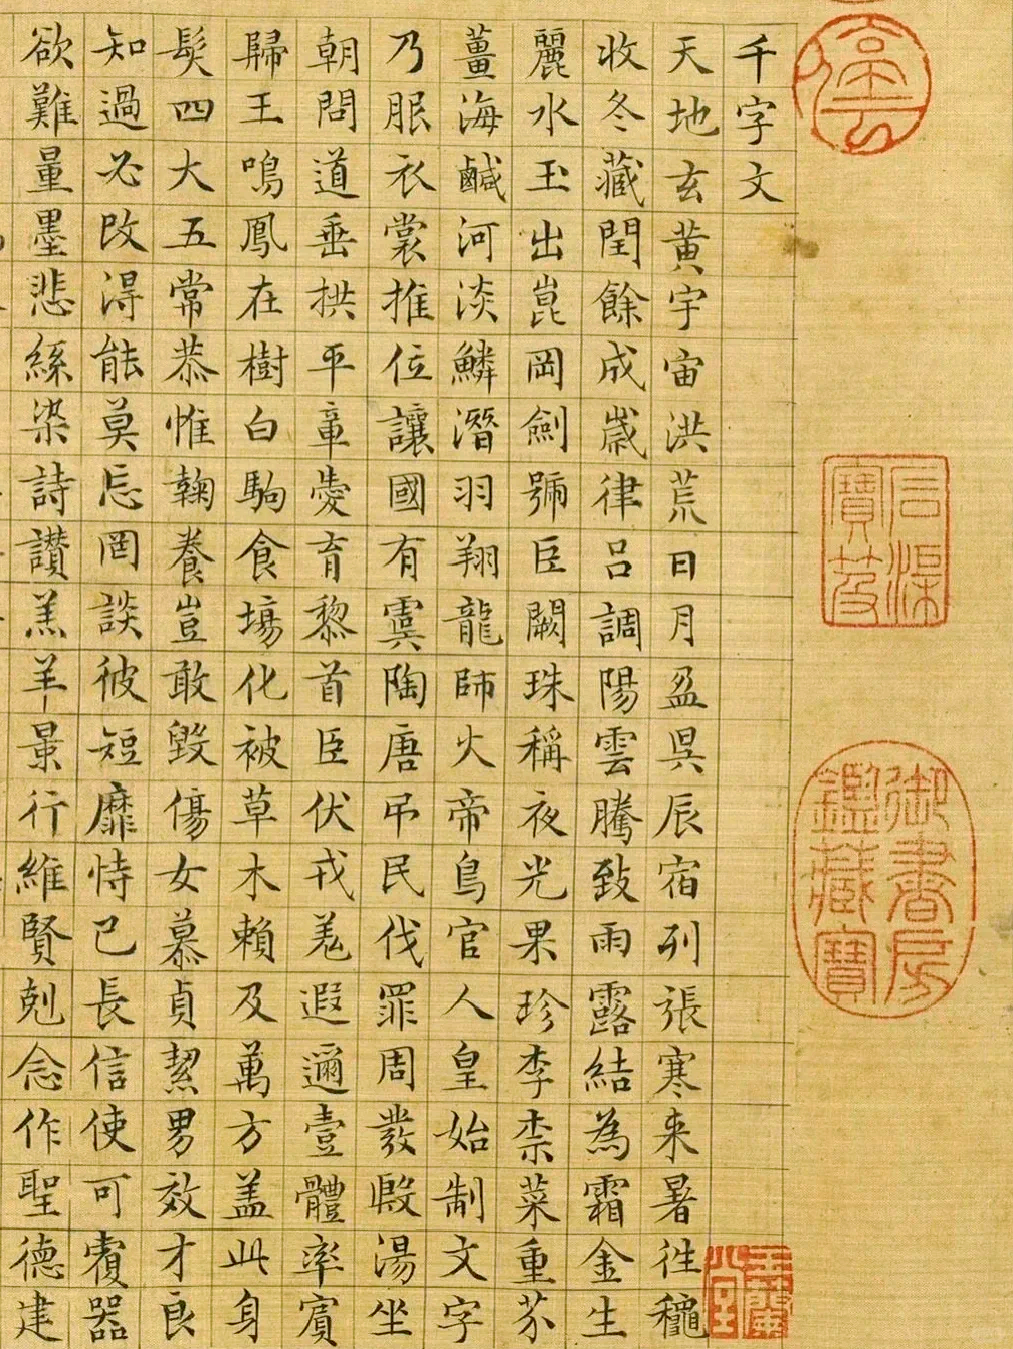 千字文
天地玄黄宇宙洪荒日月盈昃辰宿列張寒来暑往穐
收冬藏閏餘成歲律呂調陽雲騰致雨露結為霜金生
麗水玉出崑岡劍號臣闕珠稱夜光果珍李柰菜重芥
薑海鹹河淡鱗潛羽翔龍師火帝鳥官人皇始制文字
乃服衣裳推位讓國有虞陶唐吊民伐罪周發殷湯坐
朝問道垂拱平章愛育黎首臣伏戎羌遐邇壹體率賓
歸王鳴鳳在樹白駒食場化被草木賴及萬方盖此身
髮四大五常恭惟鞠養豈敢毀傷女慕貞絜男效才良
知過必改得能莫忘罔談彼短靡恃己長信使可覆器
欲難量墨悲絲染詩讚羔羊景行維賢剋念作聖德建
御書房鑑藏寶